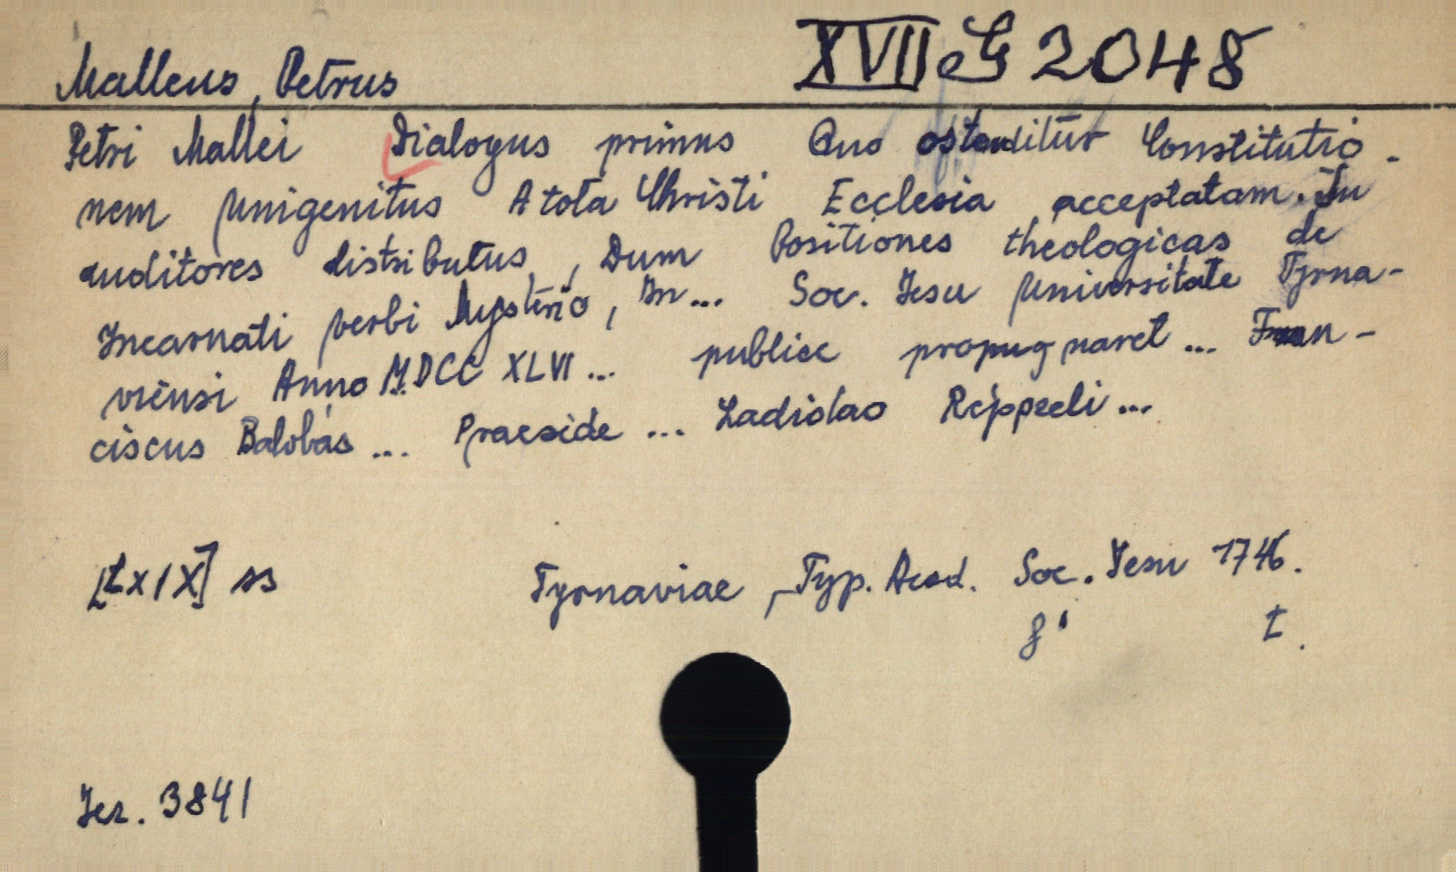 XVII G 2048
Malleus, Petrus
Petri Mallei Dialogus primus Quo ostenditur Constitutio-
nem Unigenitus A tota Christi Ecclesia acceptatam. In
auditores distributus, Dum Positiones theologicas de
Incarnati verbi Mysterio, In... Soc. Jesu Universitate Tyrna-
viensi Anno MDCC XLVI... publice propugnaret... Fran-
ciscus Balobás... Praeside... Ladislao Réppzeli...
Tyrnaviae, Typ. Acad. Soc. Jesu 1746.
8° t.
Jez. 3841